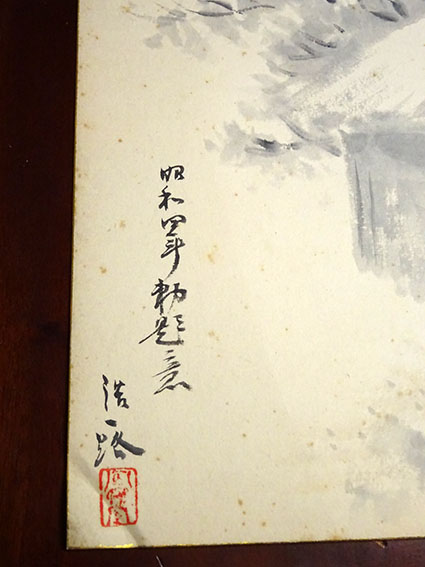 昭和四年勅題意
浩一路